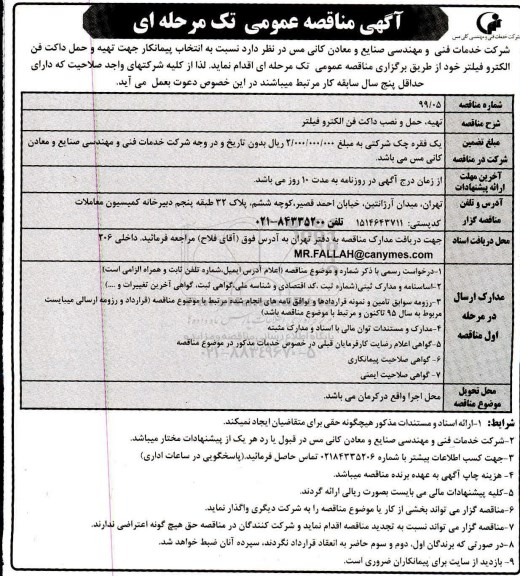 آگهی مناقصه عمومی تک مرحله ای
شرکت خدمات فنی و مهندسی صنایع و معادن کانی مس در نظر دارد نسبت به انتخاب پیمانکار جهت تهیه و حمل داکت فن
الکترو فیلتر خود از طریق برگزاری مناقصه عمومی تک مرحله ای اقدام نماید. لذا از کلیه شرکتهای واجد صلاحیت که دارای
حداقل پنج سال سابقه کار مرتبط میباشند در این خصوص دعوت بعمل می آید.
شماره مناقصه ۹۹/۰۵
شرح مناقصه تهیه، حمل و نصب داکت فن الکترو فیلتر
مبلغ تضمین یک فقره چک شرکتی به مبلغ ۲/۰۰۰/۰۰۰/۰۰۰ ریال بدون تاریخ و در وجه شرکت خدمات فنی و مهندسی صنایع و معادن
شرکت در مناقصه کانی مس می باشد.
آخرین مهلت
ارائه پیشنهادات از زمان درج آگهی در روزنامه به مدت ۱۰ روز می باشد.
آدرس و تلفن تهران، میدان آرژانتین، خیابان احمد قصیر، کوچه ششم، پلاک ۳۲ طبقه پنجم دبیرخانه کمیسیون معاملات
مناقصه گزار کدپستی: ۱۵۱۴۶۴۳۷۱۱ تلفن ۸۴۳۳۵۲۰۰-۰۲۱
محل دریافت اسناد جهت دریافت مدارک مناقصه به دفتر تهران به آدرس فوق (آقای فلاح) مراجعه فرمائید. داخلی ۲۰۶
MR.FALLAH@canymes.com
مدارک ارسال در مرحله اول مناقصه
۱-درخواست رسمی با ذکر شماره و موضوع مناقصه (اعلام آدرس ایمیل،شماره تلفن ثابت و همراه الزامی است)
۲-اساسنامه و مدارک ثبتی(شماره ثبت ،کد اقتصادی و شناسه ملی،گواهی ثبت، گواهی آخرین تغییرات و ...)
۳-رزومه سوابق تامین و نمونه قراردادها و توافق نامه های انجام شده مرتبط با موضوع مناقصه (قرارداد و رزومه ارسالی میبایست
مربوط به سال ۹۵ تاکنون و مرتبط با موضوع مناقصه باشد)
۴-مدارک و مستندات توان مالی با اسناد و مدارک مثبته
۵-گواهی اعلام رضایت کارفرمایان قبلی در خصوص خدمات مذکور در موضوع مناقصه
۶-گواهی صلاحیت پیمانکاری
۷- گواهی صلاحیت ایمنی
محل تحویل
موضوع مناقصه محل اجرا واقع درکرمان می باشد.
شرایط: ۱-ارائه اسناد و مستندات مذکور هیچگونه حقی برای متقاضیان ایجاد نمیکند.
۲-شرکت خدمات فنی و مهندسی صنایع و معادن کانی مس در قبول یا رد هر یک از پیشنهادات مختار میباشد.
۳-جهت کسب اطلاعات بیشتر با شماره ۰۲۱۸۴۳۳۵۲۰۶ تماس حاصل فرمائید.(پاسخگویی در ساعات اداری)
۴- هزینه چاپ آگهی به عهده برنده مناقصه میباشد.
۵-کلیه پیشنهادات مالی می بایست بصورت ریالی ارائه گردند.
۶-مناقصه گزار می تواند بخشی از کار یا موضوع مناقصه را به شرکت دیگری واگذار نماید.
۷-مناقصه گزار می تواند نسبت به تجدید مناقصه اقدام نماید و شرکت کنندگان در مناقصه حق هیچ گونه اعتراضی ندارند.
۸-در صورتی که برندگان اول، دوم و سوم حاضر به انعقاد قرارداد نگردند، سپرده آنان ضبط خواهد شد.
۹- بازدید از سایت برای پیمانکاران ضروری است.